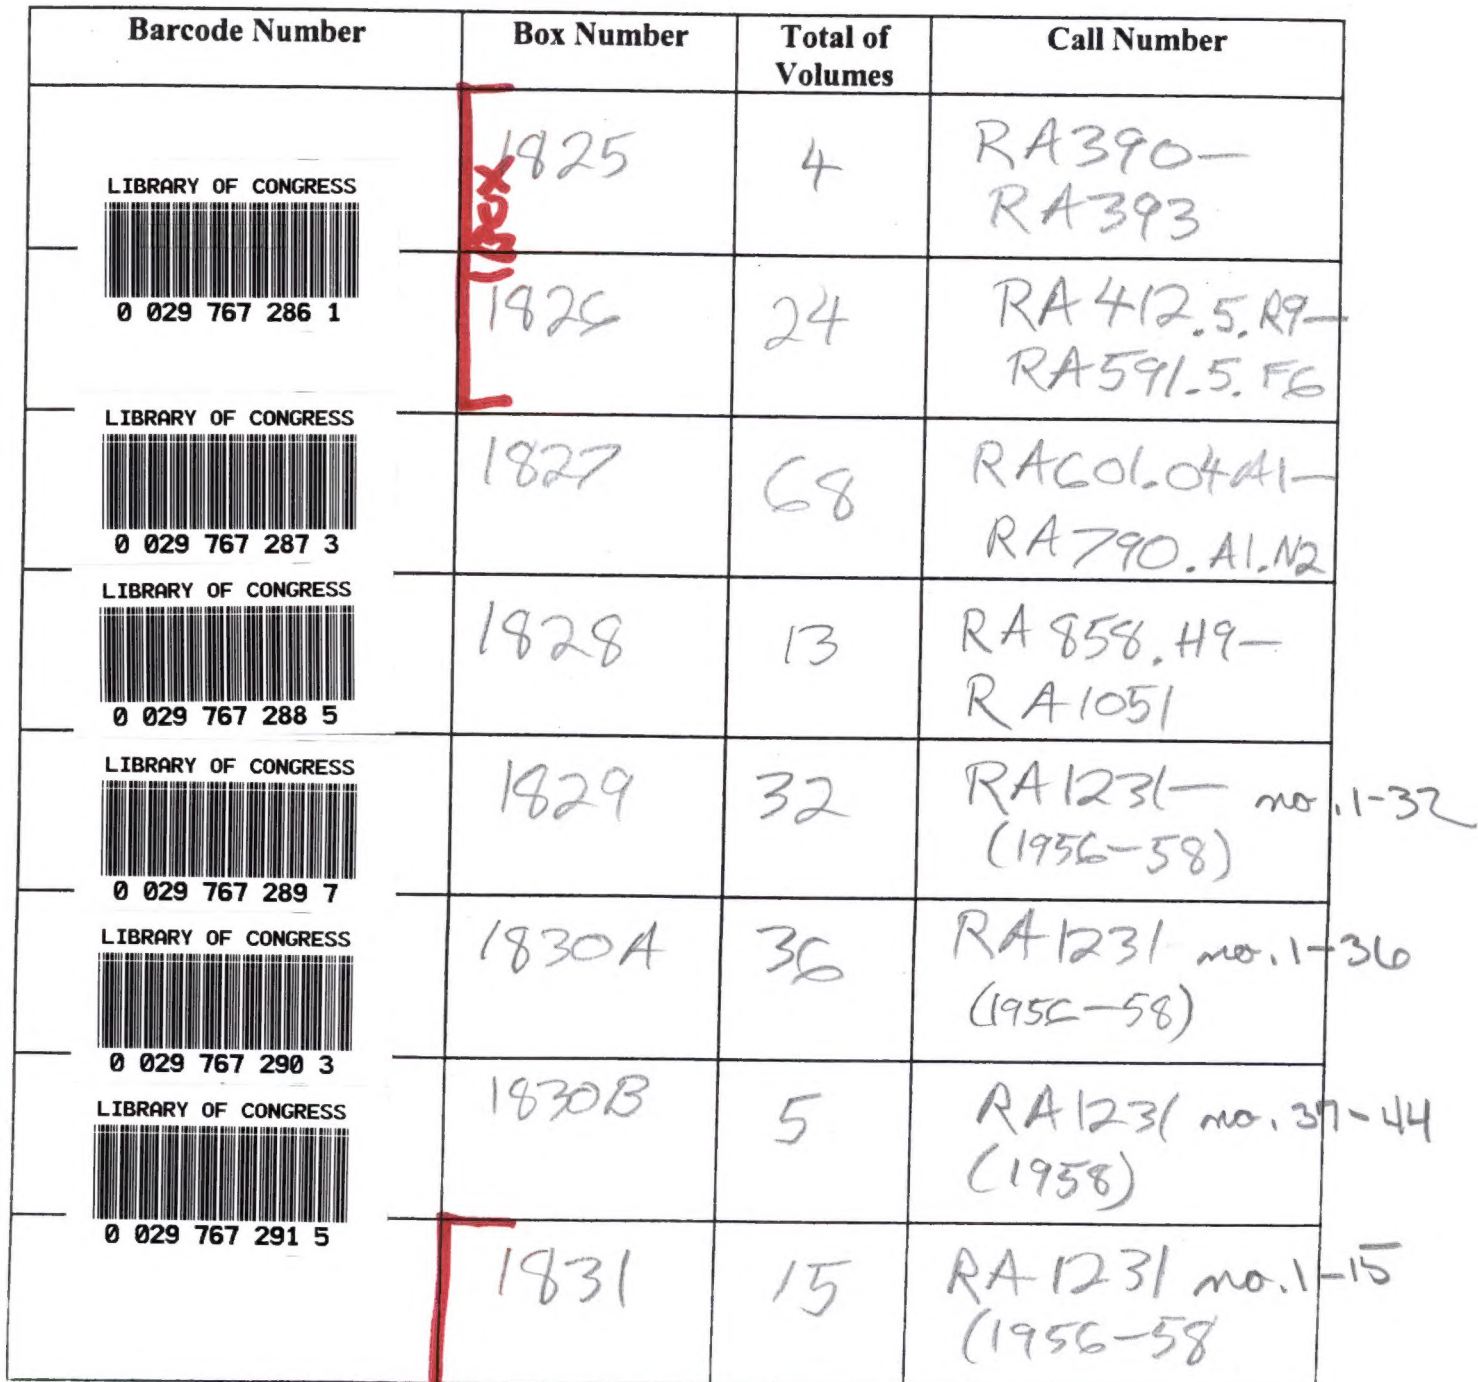 Barcode Number Box Number Total of Call Number
Volumes
LIBRARY OF CONGRESS
0 029 767 286 1
1 Box
1825 4 RA390-
RA393
1826 24 RA412.5.R9-
RA591.5.F6
LIBRARY OF CONGRESS
0 029 767 287 3
1827 68 RA601.04A1-
RA790.A1.N2
LIBRARY OF CONGRESS
0 029 767 288 5
1828 13 RA858.H9-
RA1051
LIBRARY OF CONGRESS
0 029 767 289 7
1829 32 RA1231- no.1-32
(1956-58)
LIBRARY OF CONGRESS
0 029 767 290 3
1830A 36 RA1231 no.1-36
(1956-58)
LIBRARY OF CONGRESS
0 029 767 291 5
1830B 5 RA1231 no.37-44
(1958)
1831 15 RA1231 no.1-15
(1956-58